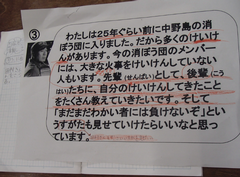 ③
わたしは25年ぐらい前に中野島の消
ぼう団に入りました。だから多くのけいけ
んがあります。今の消ぼう団のメンバー
には、大きな火事をけいけんしていない
人もいます。先輩(せんぱい)として、後輩(こう
はい)たちに、自分のけいけんしてきたこと
をたくさん教えていきたいです。そして
「まだまだわかい者には負けないぞ」とい
うすがたも見せていけたらいいなと思っ
ています。